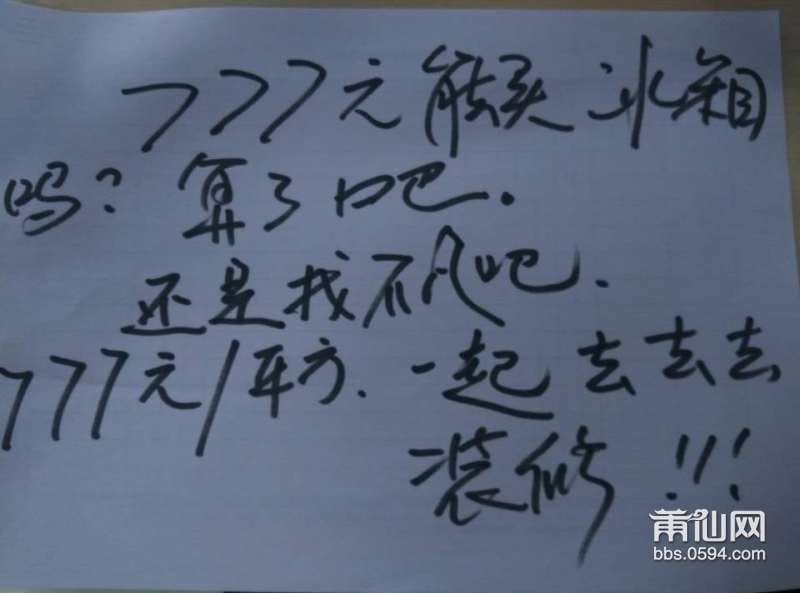 777元能买冰箱
吗?算了吧.
还是找不凡吧.
777元/平方.一起去去去
装修!!!
莆仙网
bbs.0594.com